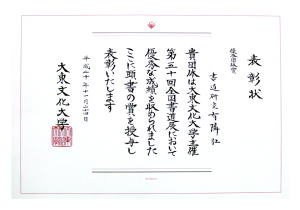 表彰状
優秀団体賞
書道研究有隣社
貴団体は大東文化大学主催
第五十回全国書道展において
優秀な成績を収められました
ここに頭書の賞を授与し
表彰いたします
平成二十年十一月二十四日
大東文化大学